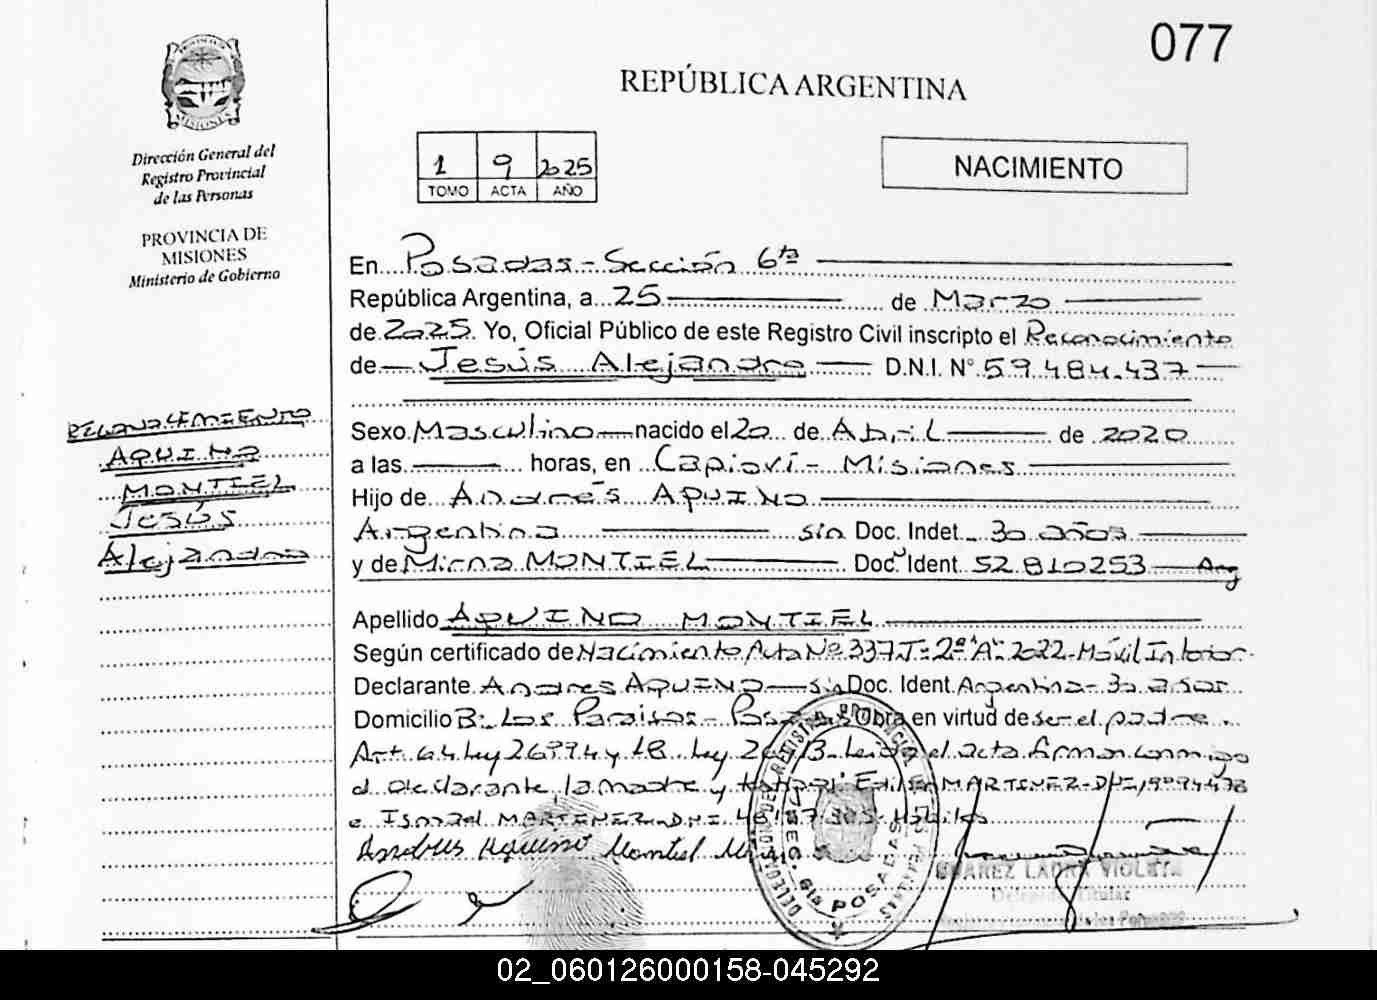 077
REPÚBLICA ARGENTINA
MISIONES
Dirección General del
Registro Provincial
de las Personas
PROVINCIA DE
MISIONES
Ministerio de Gobierno
1 9 2025
TOMO ACTA AÑO
NACIMIENTO
En Posadas - Sección 6ta
República Argentina, a 25 de Marzo
de 2025. Yo, Oficial Público de este Registro Civil inscripto el Reconocimiento
de Jesús Alejandro D.N.I. N° 59.484.437
Sexo Masculino nacido el 20 de Abril de 2020
a las horas, en Capioví - Misiones
Hijo de Andrés AQUINO
Argentino sin Doc. Indet. 30 años
y de Mirna MONTIEL Doc. Ident. 52.810253 Arg
Apellido AQUINO MONTIEL
Según certificado de Nacimiento Acta Nº 337. T: 2º A: 2022 - Móvil Interior
Declarante Andres AQUINO sin Doc. Ident. Argentino - 30 años
Domicilio B: Los Paraisos - Posadas Obra en virtud de ser el padre.
Art. 64 Ley 26994 y 18 Ley 26413 - Leida el acta firman conmigo
el declarante, la madre y MARTINEZ - DNI
e Ismael MARTINEZ - DNI Hábiles
RECONOCIMIENTO
AQUINO
MONTIEL
Jesús
Alejandro
Aquino Montiel
SUAREZ LAURA VIOLETA
Titular
SEC. 6ta POSADAS
02_060126000158-045292